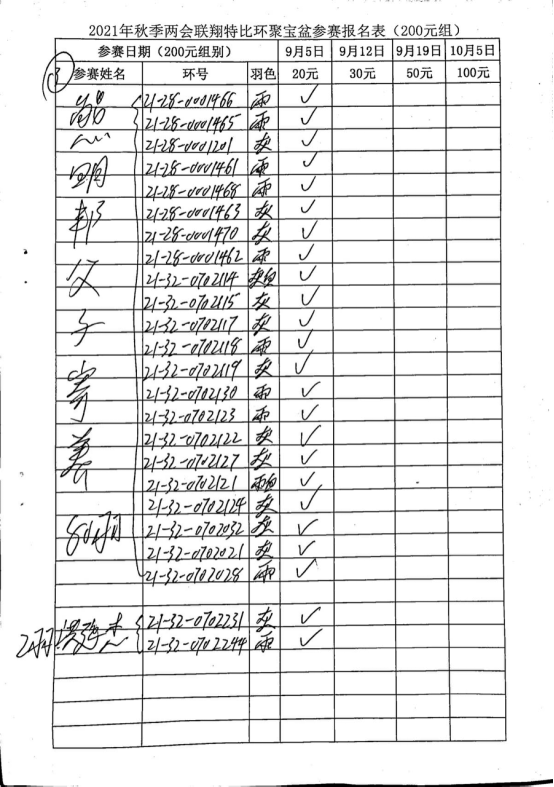 2021年秋季两会联翔特比环聚宝盆参赛报名表（200元组）
参赛日期（200元组别） 9月5日 9月12日 9月19日 10月5日
③ 参赛姓名 环号 羽色 20元 30元 50元 100元
21-28-0001466 雨 ✓
21-28-0001465 雨 ✓
21-28-0001201 灰 ✓
21-28-0001461 雨 ✓
21-28-0001468 雨 ✓
21-28-0001463 灰 ✓
21-28-0001470 灰 ✓
父 21-28-0001462 雨 ✓
21-32-0702114 灰白 ✓
子 21-32-0702115 灰 ✓
21-32-0702117 灰 ✓
21-32-0702118 雨 ✓
21-32-0702119 灰 ✓
21-32-0702130 雨 ✓
21-32-0702123 雨 ✓
21-32-0702122 灰 ✓
21-32-0702127 灰 ✓
21-32-0702121 雨白 ✓
21-32-0702124 灰 ✓
21-32-0702032 灰 ✓
21-32-0702021 灰 ✓
21-32-0702028 雨 ✓
21-32-0702231 灰 ✓
21-32-0702244 雨 ✓